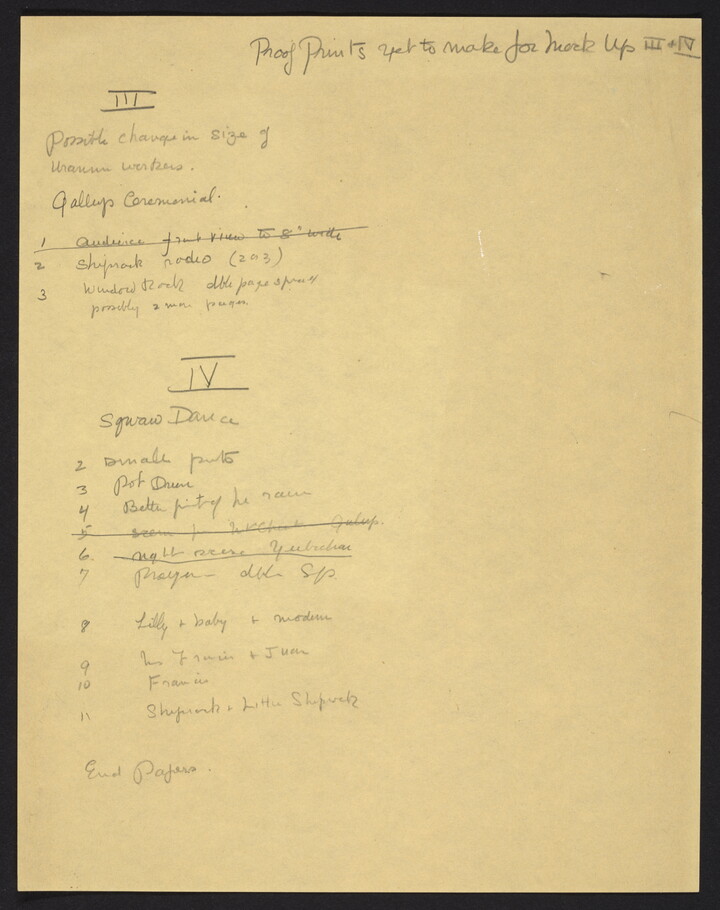 Proof Prints yet to make for Mock Up III + IV
III
Possible change in size of
Uranium workers.
Gallup Ceremonial.
1 audience front view to 8" wide
2 Shiprock rodeo (2 or 3)
3 Window Rock dble page spread
possibly 2 more pages.
IV
Squaw Dance
2 small prints
3 Pot Drum
4 Better print of he
5 Gallup.
6. night scene Yeibechai
7 Prayer — dble Sp
8 Lilly + baby + modern
9 + Juan
10 Francis
11 Shiprock + Little Shiprock
End Papers.